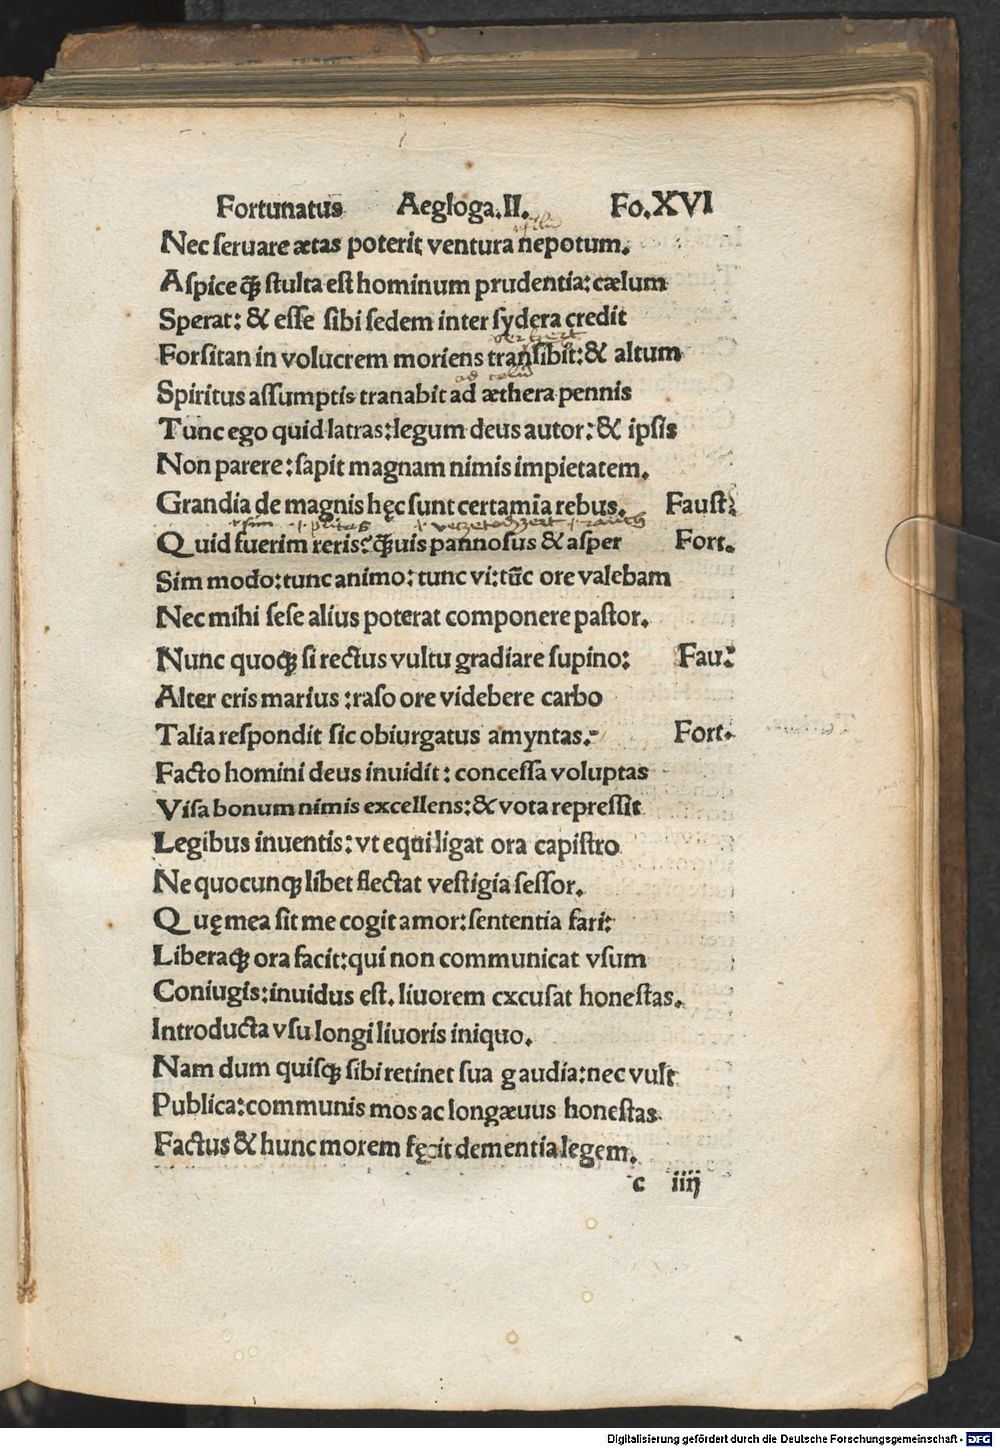 Fortunatus Aegloga.II. Fo.XVI
Nec ſeruare ætas poterit ventura nepotum.
Aſpice ꝗ̃ ſtulta eſt hominum prudentia: cælum
Sperat: & eſſe ſibi ſedem inter ſydera credit
Forſitan in volucrem moriens tranſibit: & altum
ad celũ
Spiritus aſſumptis tranabit ad æthera pennis
Tunc ego quid latras: legum deus autor: & ipſis
Non parere: ſapit magnam nimis impietatem.
Grandia de magnis hęc ſunt certamĩa rebus. Fauſt.
Quid fuerim reris? ꝗ̃uis pannoſus & aſper Fort.
Sim modo: tunc animo: tunc vi: tũc ore valebam
Nec mihi ſeſe alius poterat componere paſtor.
Nunc quoqꝫ ſi rectus vultu gradiare ſupino: Fau:
Alter eris marius: raſo ore videbere carbo
Talia reſpondit ſic obiurgatus amyntas. Fort.
Facto homini deus inuidit: conceſſa voluptas
Viſa bonum nimis excellens: & vota repreſſit
Legibus inuentis: vt equi ligat ora capiſtro
Ne quocunqꝫ libet flectat veſtigia ſeſſor.
Quę mea ſit me cogit amor: ſententia fari:
Liberaqꝫ ora facit: qui non communicat vſum
Coniugis: inuidus eſt. liuorem excuſat honeſtas.
Introducta vſu longi liuoris iniquo.
Nam dum quiſqꝫ ſibi retinet ſua gaudia: nec vult
Publica: communis mos ac longæuus honeſtas
Factus & hunc morem fęcit dementia legem.
c iiij
Digitalisierung gefördert durch die Deutsche Forschungsgemeinschaft - DFG